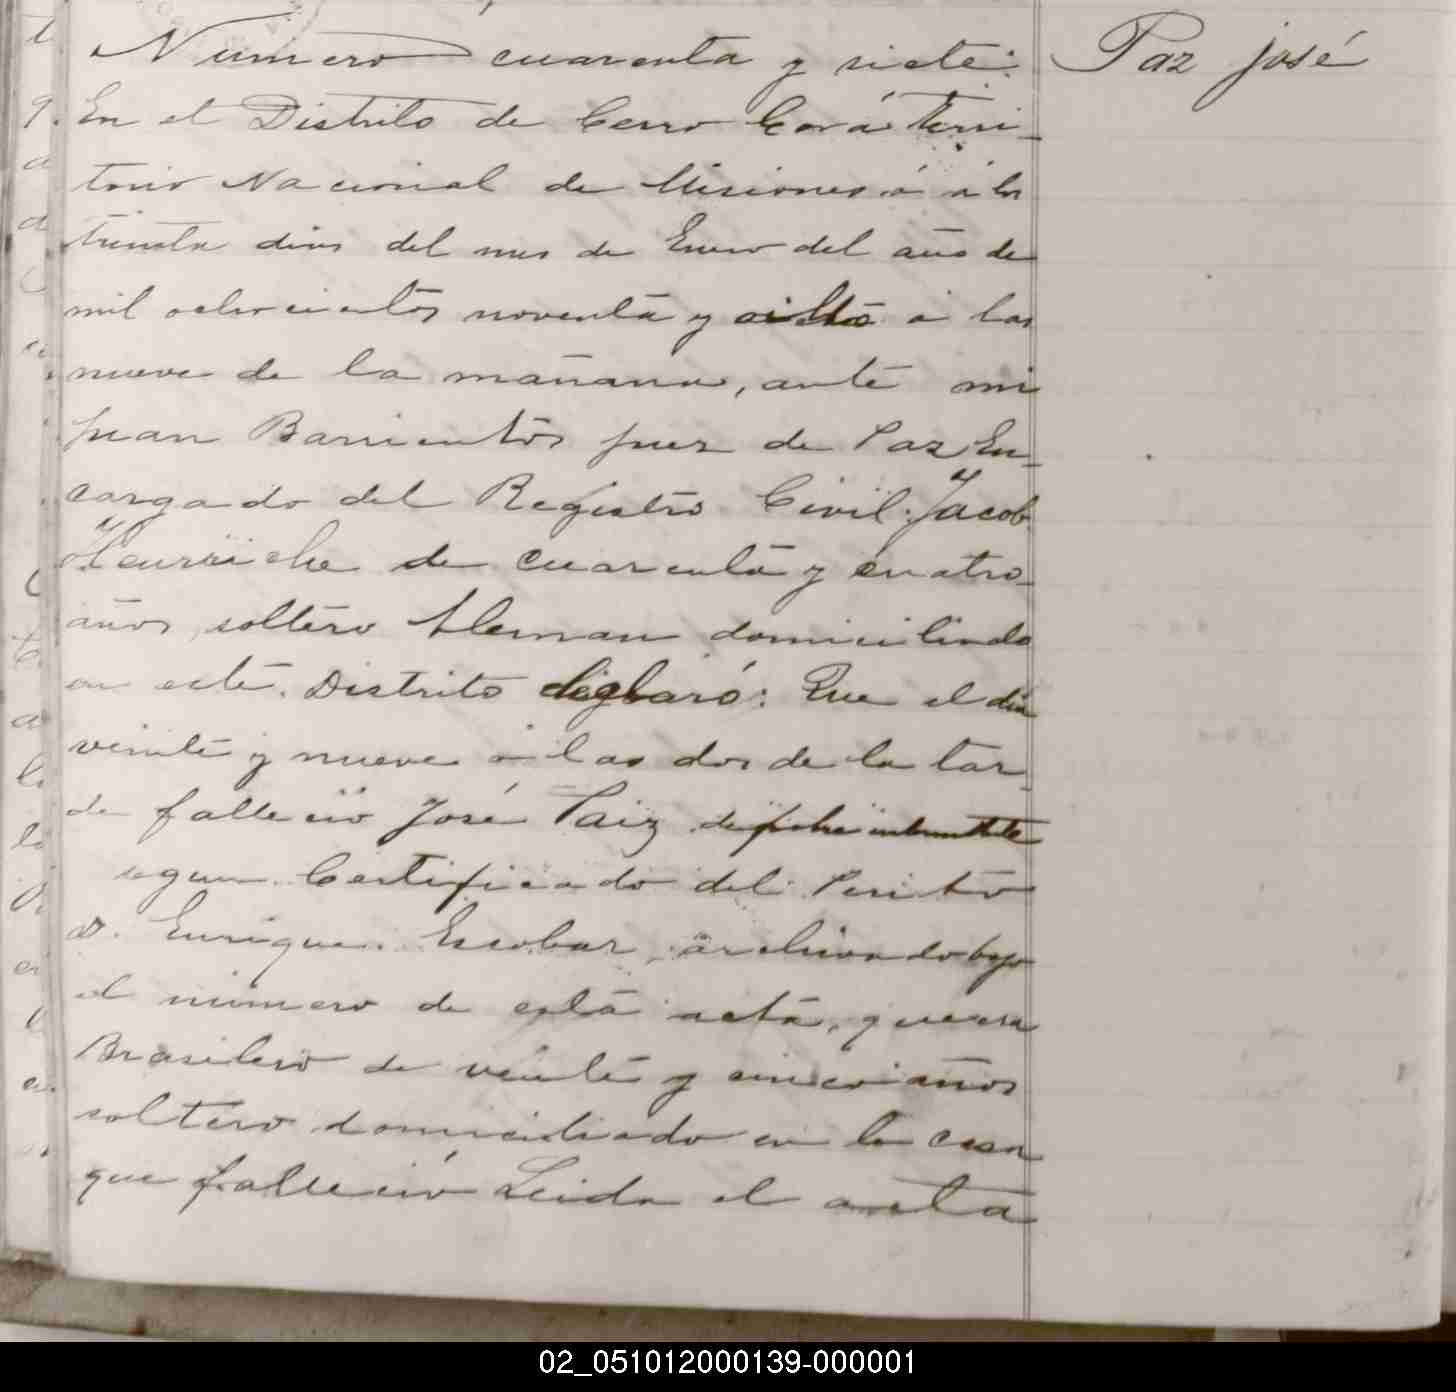 Numero cuarenta y siete:
Paz José
En el Distrito de Cerro Corá Terri-
torio Nacional de Misiones á á los
treinta dias del mes de Enero del año de
mil ochocientos noventa y á las
nueve de la mañana, ante mi
Juan Barrientos Juez de Paz En-
cargado del Registro Civil. Jacob
Heurriche de cuarenta y cuatro
años, soltero Aleman domiciliado
en este Distrito declaró: Que el dia
veinte y nueve á las dos de la tar-
de falleció José Paiz de fiebre
segun Certificado del Perito
D. Enrique Escobar, archivado bajo
el número de esta acta, que era
Brasilero de veinte y cinco años
soltero domiciliado en la casa
que falleció Leida el acta
02_051012000139-000001